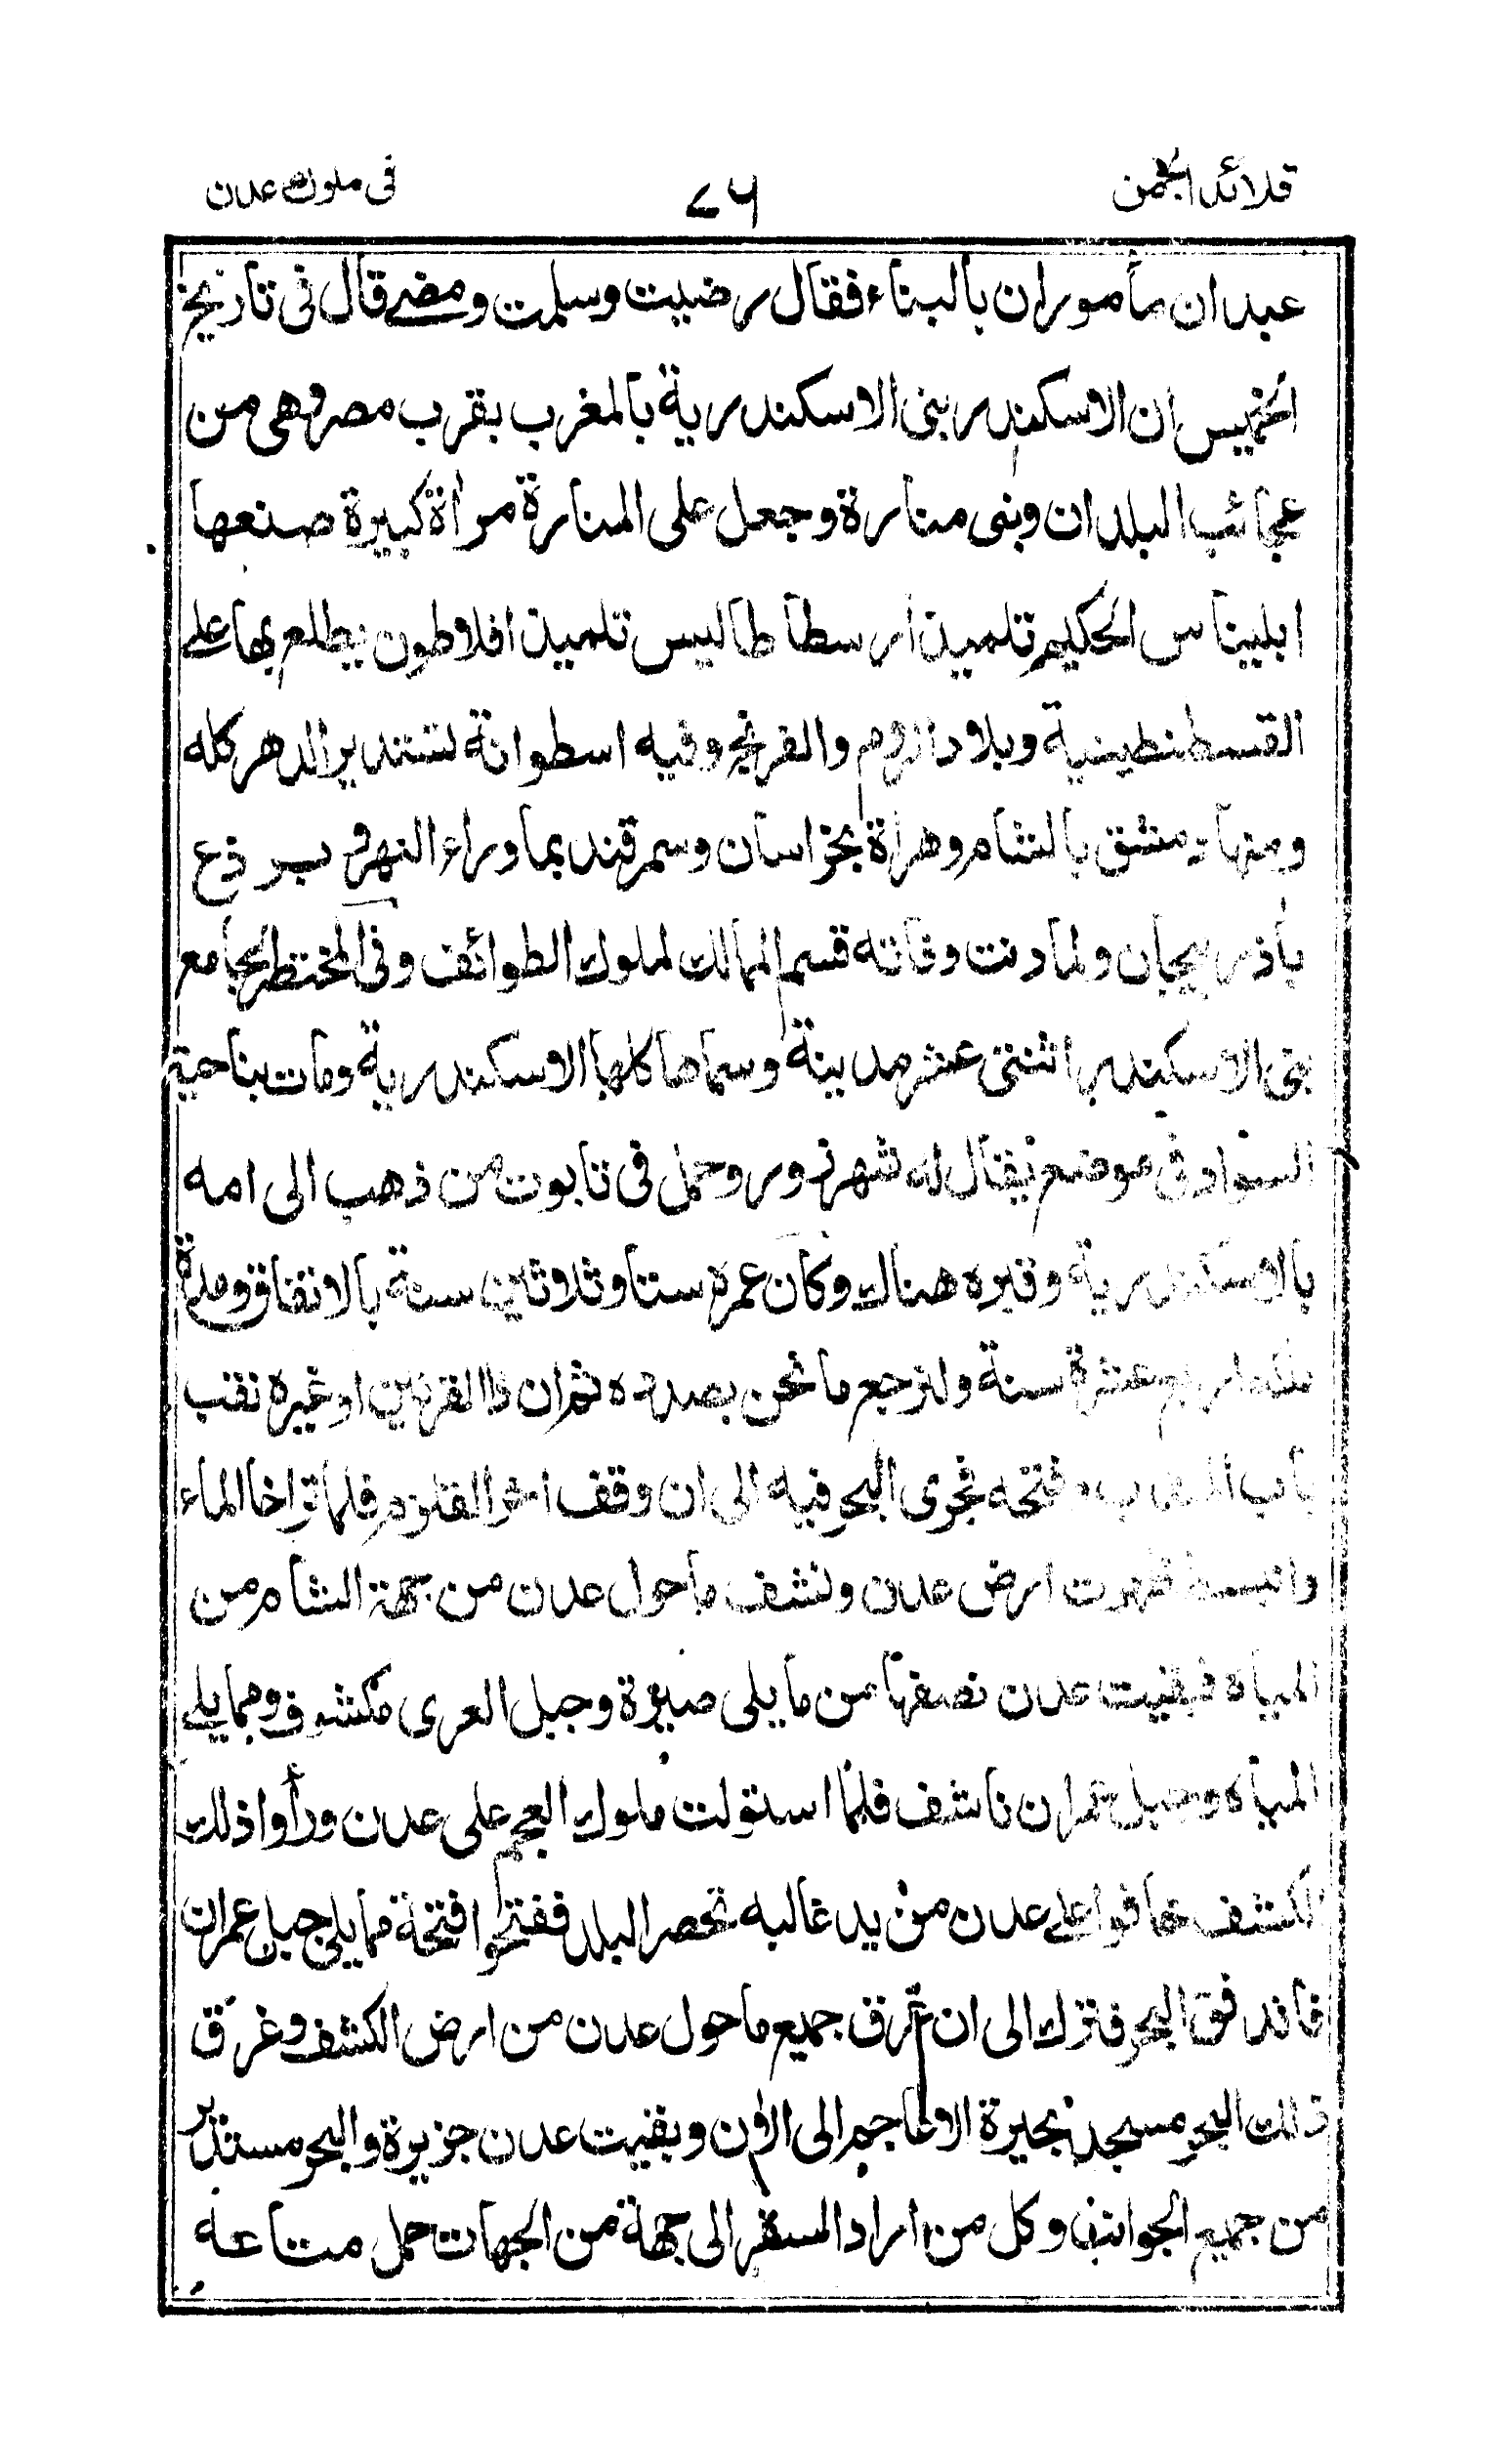 قلائد الجمن ٧٦ فى ملوك عدن
عبدان مأموران بالبناء فقال رضيت وسلمت ومضى قال فى تاريخ
الخميس ان الاسكندر بنى الاسكندرية بالمغرب بقرب مصر وهى من
عجائب البلدان وبنى منارة وجعل على المنارة مرأة كبيرة صنعها
ابليناس الحكيم تلميذ ارسطاطاليس تلميذ افلاطون يطلع بها على
القسطنطينية وبلاد الروم والفرنج وفيه اسطوانة تستدير الدهر كله
ومنها دمشق بالشام وهراة بخراسان وسمرقند بما وراء النهر وبرذع
بأذربيجان ولما دنت وفاته قسم الممالك لملوك الطوائف وفى المختصر الجامع
بنى الاسكندر اثنتى عشر مدينة وسماها كلها الاسكندرية ومات بناحية
السواد فى موضع يقال له شهرزور وحمل فى تابوت من ذهب الى امه
بالاسكندرية وقبره هناك وكان عمره ستا وثلاثين سنة بالاتفاق ومدة
ملكه اربع عشرة سنة ولنرجع ما نحن بصدده ثم ان ذا القرنين او غيره نقب
باب المندب وفتحه فجرى البحر فيه الى ان وقف اخر القلزم فلما تراخا الماء
وانبسط ظهرت ارض عدن ونشف ما حول عدن من جهة الشام من
المياه فبقيت عدن نصفها من ما يلى صيرة وجبل العرى مكشوف ومما يلى
المباه وجبل عمران ناشف فلما استولت ملوك العجم على عدن ورأوا ذلك
الكشف خافوا على عدن من يد غالبه تحصر البلد ففتحوا فتحة مما يلى جبل عمران
فاندفق البحر فترك الى ان غرق جميع ما حول عدن من ارض الكشف وغرق
ذلك البحر مسجد بحيرة الاعاجم الى الان وبقيت عدن جزيرة والبحر مستدير
من جميع الجوانب وكل من اراد السفر الى جهة من الجهات حمل متاعه